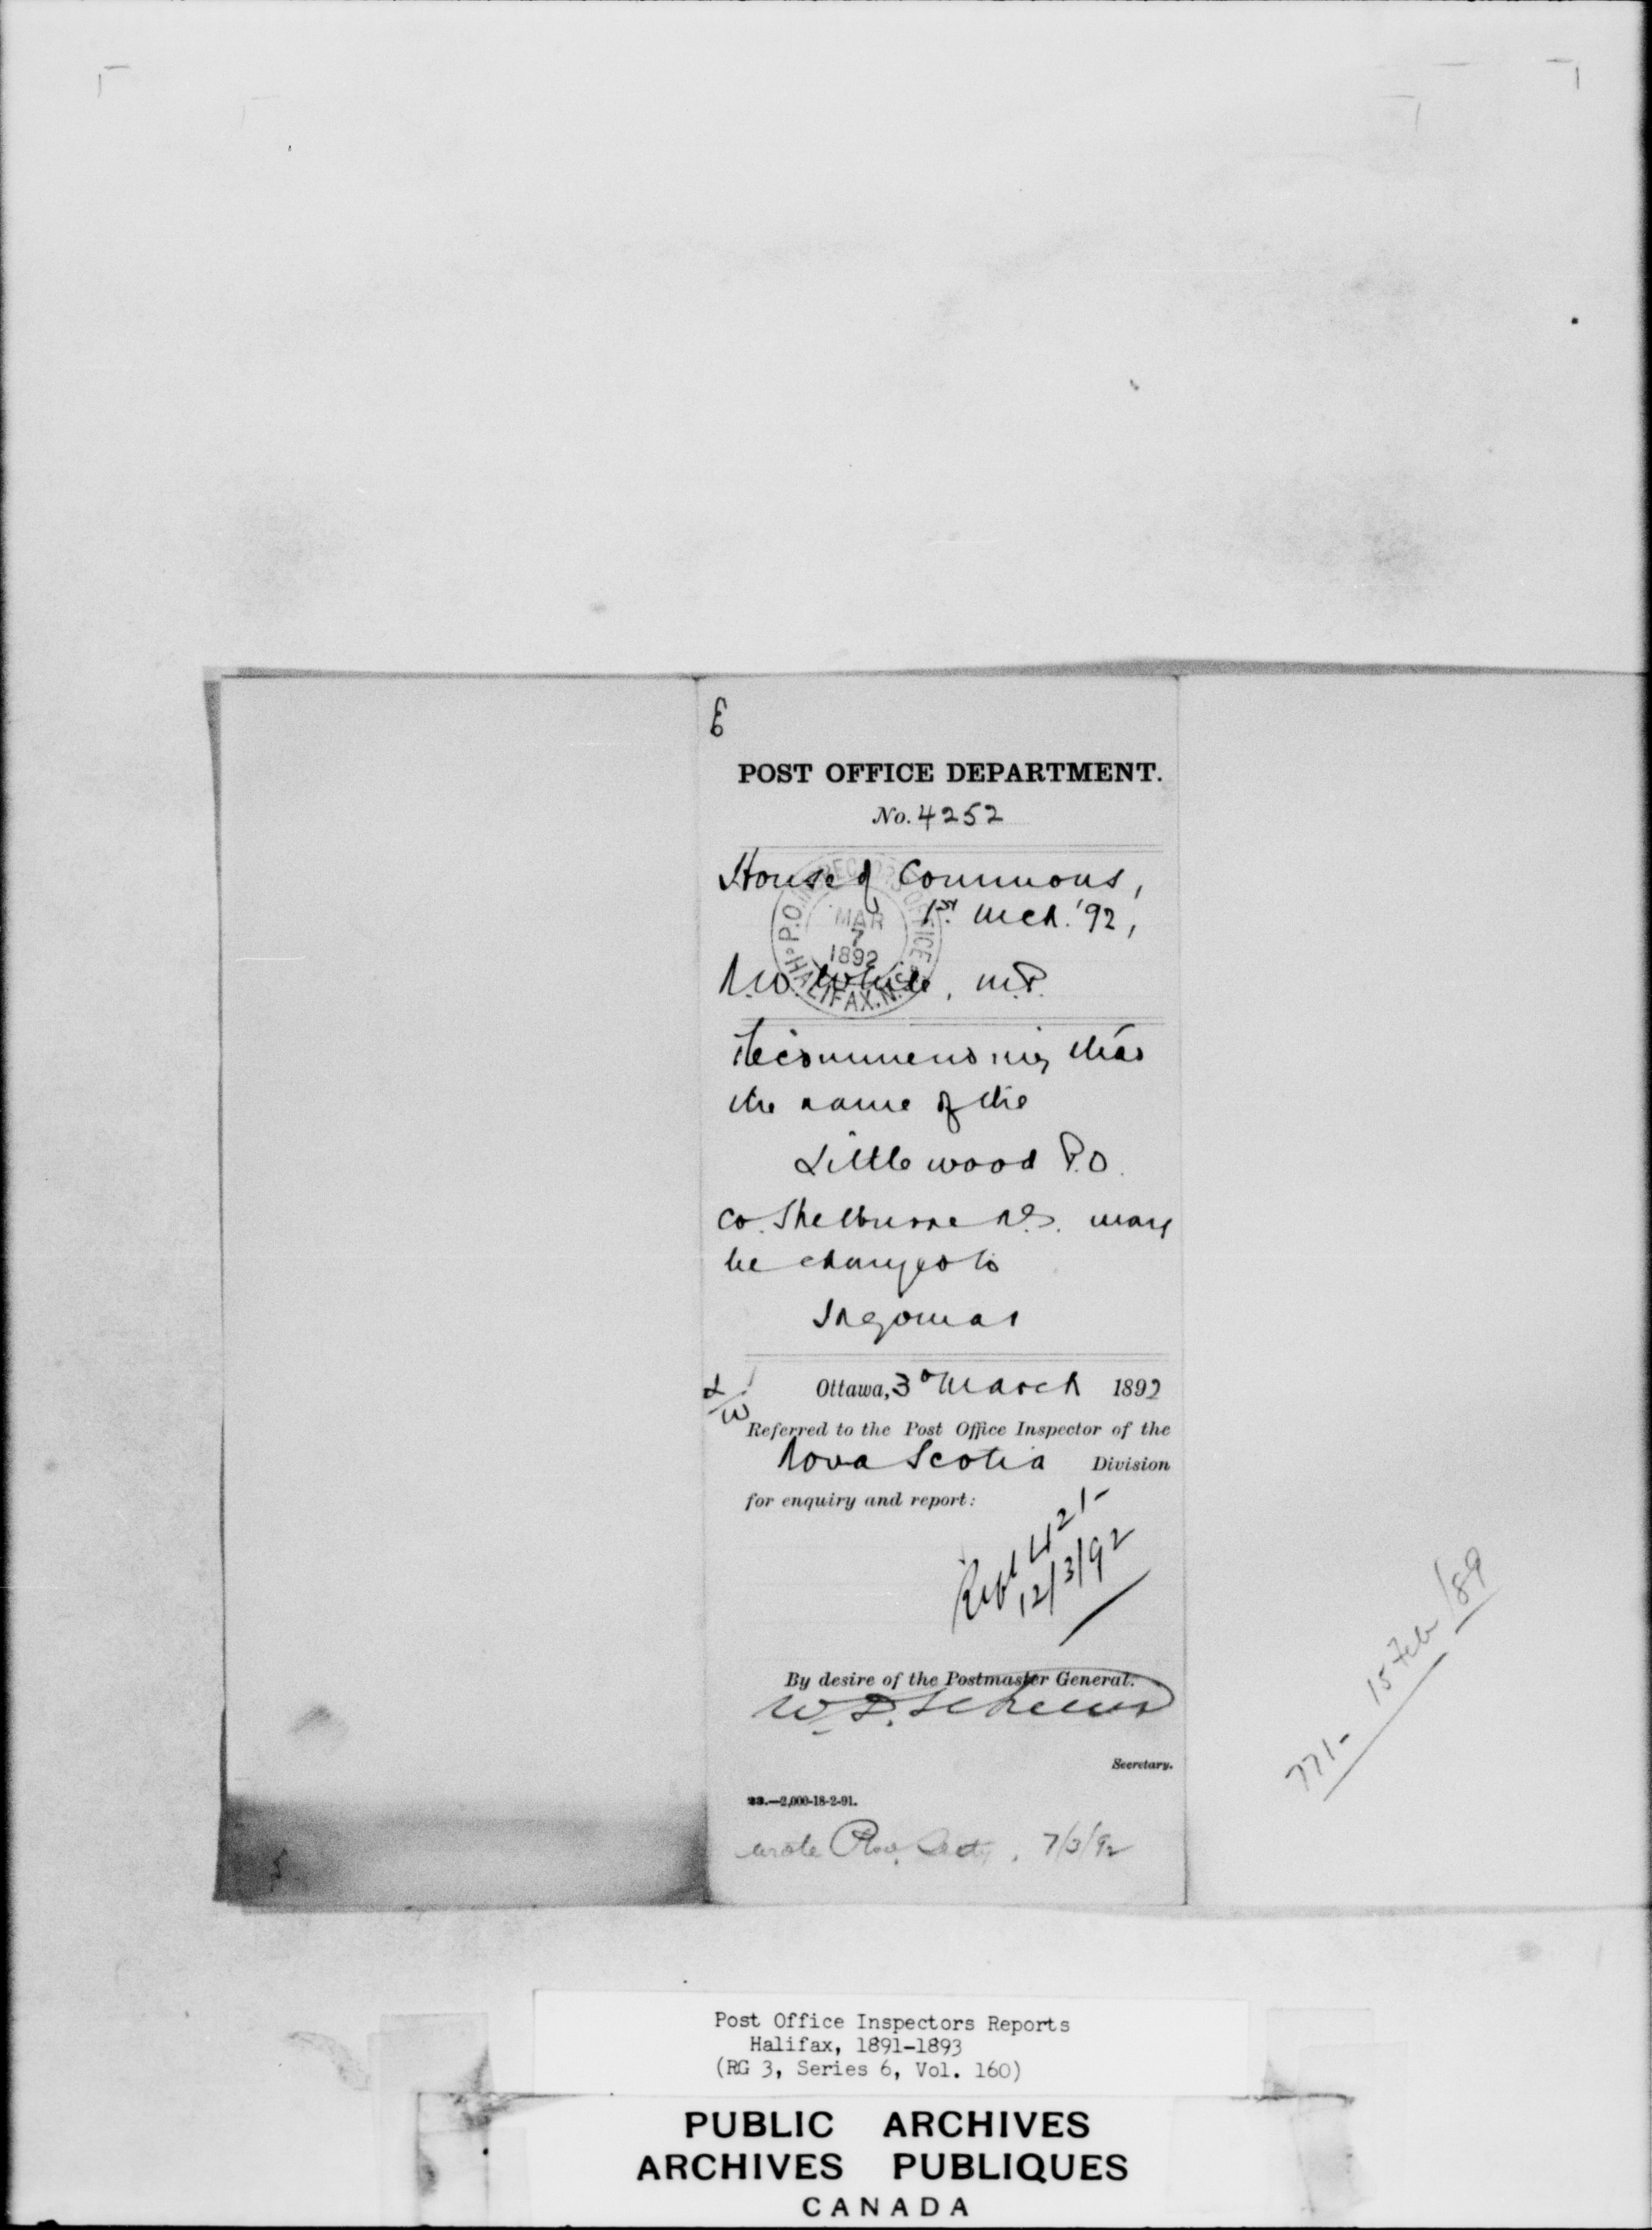 POST OFFICE DEPARTMENT.
No. 4252
House of Commons,
1st Mch. '92,
N.W. White, M.P.
P.O. INSPECTOR'S OFFICE
MAR
7
1892
HALIFAX. N.S.
Recommending that
the name of the
Littlewood P.O.
Co. Shelburne N.S. may
be changed to
Ingomar
Ottawa, 3d March 1892
Referred to the Post Office Inspector of the
Nova Scotia Division
for enquiry and report:
Rept 421-
12/3/92
By desire of the Postmaster General.
W.D.
Secretary.
23.—2,000-18-2-91.
wrote Prov. Secty, 7/3/92
771- 15 Feb/89
Post Office Inspectors Reports
Halifax, 1891-1893
(RG 3, Series 6, Vol. 160)
PUBLIC ARCHIVES
ARCHIVES PUBLIQUES
CANADA